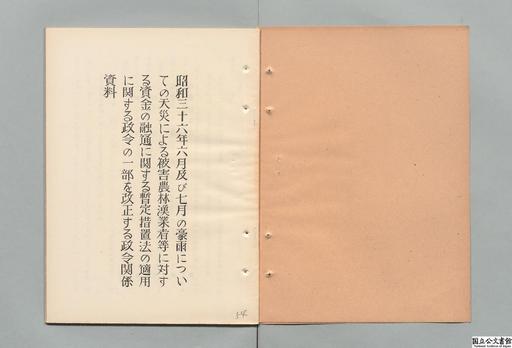 昭和三十六年六月及び七月の豪雨につい
ての天災による被害農林漁業者等に対す
る資金の融通に関する暫定措置法の適用
に関する政令の一部を改正する政令関係
資料
国立公文書館
National Archives of Japan